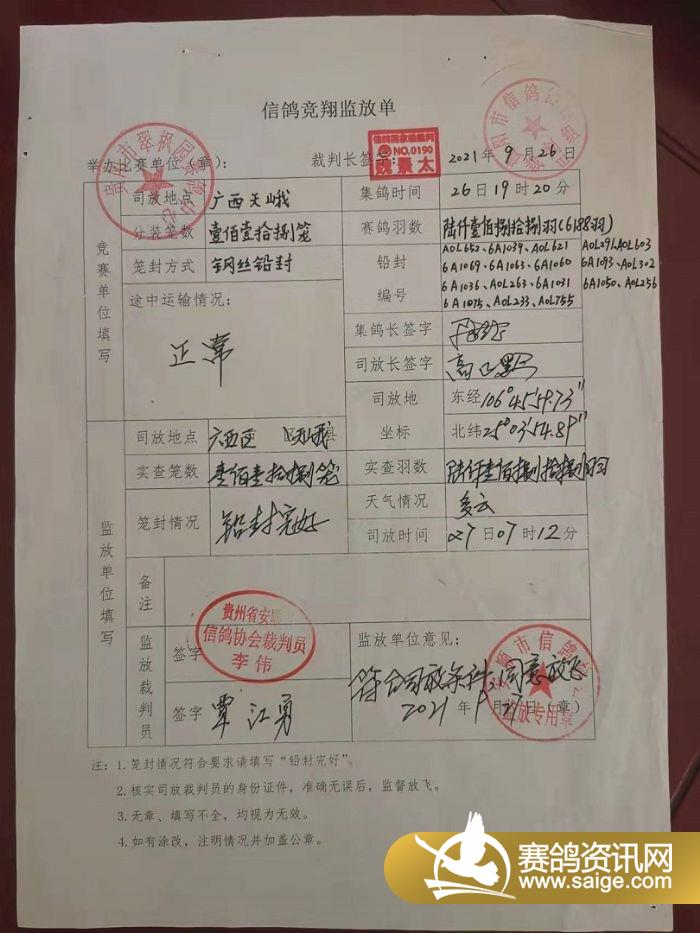 信鸽竞翔监放单
举办比赛单位（章）：
贵阳市翠枫园赛鸽中心
裁判长签字：
信鸽国家级裁判
NO.0190
2021年9月26日
竞赛单位填写
司放地点 广西天峨
集鸽时间 26日19时20分
分装笼数 壹佰壹拾捌笼
赛鸽羽数 陆仟壹佰捌拾捌羽(6188羽)
笼封方式 钢丝铅封
铅封编号
A0L652、6A1039、A0L621 A0L291、A0L603
6A1069、6A1063、6A1060 6A1093、A0L302
6A1036、A0L263、6A1031 6A1050、A0L256
6A1075、A0L233、A0L755
途中运输情况：
正常
集鸽长签字
司放长签字
司放地坐标
东经106°45′54.73″
北纬25°03′54.89″
监放单位填写
司放地点 广西 天峨县
实查笼数 壹佰壹拾捌笼
实查羽数 陆仟壹佰捌拾捌羽
笼封情况 铅封完好
天气情况 多云
司放时间 27日07时12分
备注
监放裁判员
签字
贵州省安顺
信鸽协会裁判员
李伟
签字 覃江勇
监放单位意见：
符合司放条件，同意放飞
2021年9月27日（章）
安顺市信鸽
监放专用章
注：1.笼封情况符合要求请填写“铅封完好”。
2.核实司放裁判员的身份证件，准确无误后，监督放飞。
3.无章、填写不全，均视为无效。
4.如有涂改，注明情况并加盖公章。
赛鸽资讯网
www.saige.com